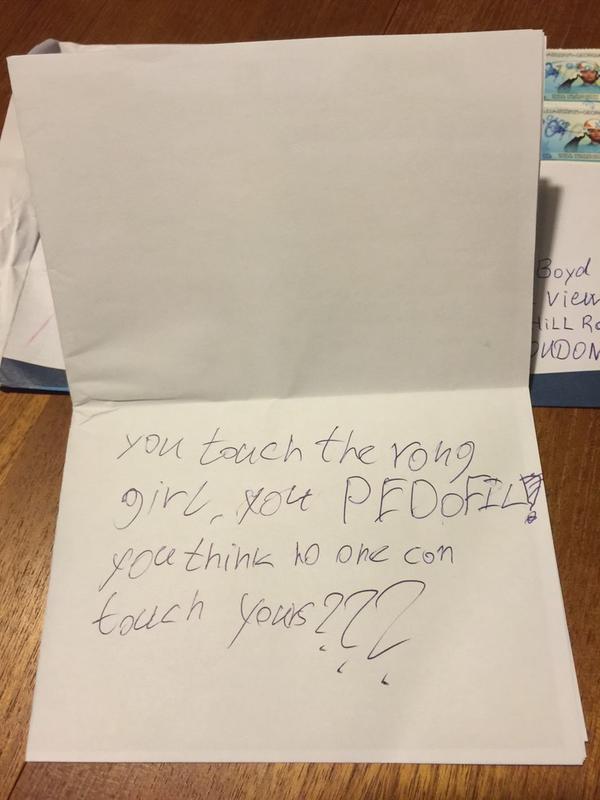 Boyd
View
Hill Ro
OUDON
you touch the rong
girl, you PEDOFIL!
you think no one con
touch yours???